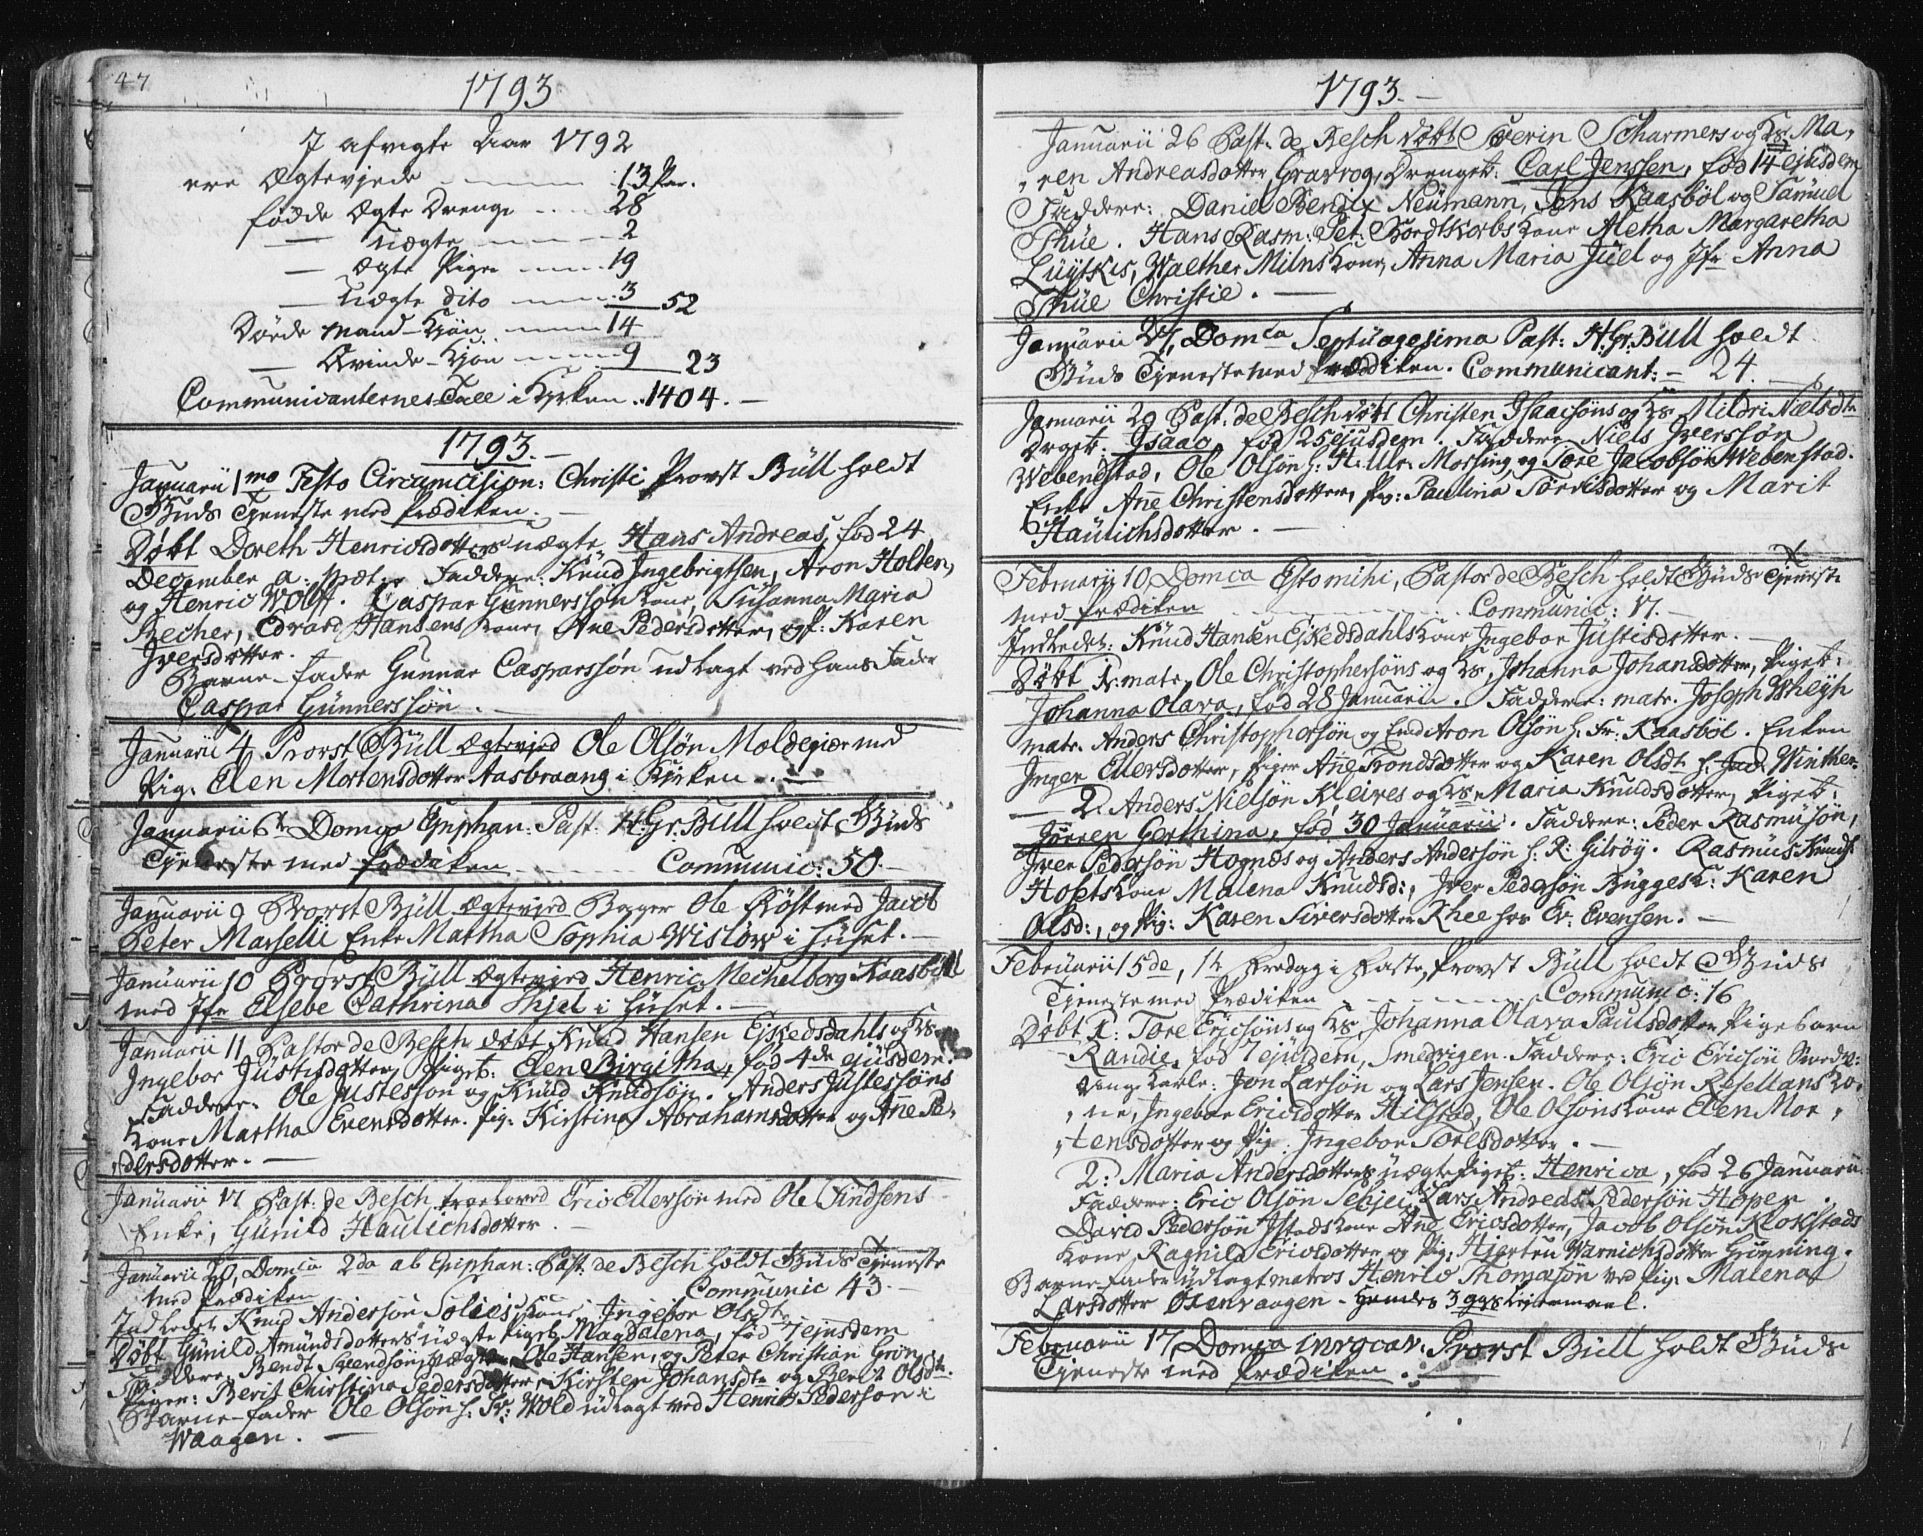 47
1793
I afvigte Aar 1792
ere Ægteviede 13 Par.
fødde Ægte Drenge 28
— Uægte 2
— Ægte Piger 19
— Uægte dito 3 52
Døde Mand-Kiøn 14
— Qvinde-Kiøn 9 23
Communicanternes Tall i Kyrken 1404. —
1793. —
Januarii 1mo Festo Circumcision: Christi Provst Büll holdt
Guds Tjeneste med Prædiken. —
Døbt Doreth Henricsdotters uægte Hans Andreas, fød 24
December a: p: Faddere: Knud Ingebrigtsen, Aron Holten,
og Henric Wolff. Caspar Gunnerssøn Kone, Susanna Maria
Becher, Edvard Hansens Kone, Ane Pedersdotter, og P: Karen
Iversdotter.
Barne-fader Gunnar Casparssøn udlagt ved hans Fader
Caspar Günnerssøn. —
Januarii 4 Provst Büll Ægtevied Ole Olsøn Moldegiær med
Pig: Elen Mortensdotter Aasbraang i Kyrken. —
Januarii 6te Domca Epiphan: Past: H: Gr: Büll holdt Guds
Tjeneste med Prædiken Communic: 50 —
Januarii 9 Provst Büll Ægtevied Bager Ole Røst med Jacob
Peter Marselii Enke Martha Sophia Wisløw i Huset. —
Januarii 10 Provst Büll Ægtevied Henric Mechelborg Kaasbøll
med Jfr Elsebe Cathrina Thiel i Huset. —
Januarii 11 Pastor de Besch døbt Knud Hansen Eikedsdahls og Ks
Ingebor Jüstisdotter, Piget: Elen Birgitha, fød 4de ejusdem.
Faddere: Ole Justessøn og Knud Knudsøn. Anders Justessøns
Kone Martha Evensdotter. Pig: Kirstina Abrahamsdotter og Ane Pe,
,dersdotter. —
Januarii 17 Past: de Besch troeloved Eric Ellersøn med Ole Findsens
Enke, Günild Haulichsdotter. —
Januarii 20, Domca 2da ab Epiphan: Past: de Besch holdt Guds Tjeneste
med Prædiken Communic 43. —
Indledet Knud Andersøn Solies Kone Ingebor Olsdtr
Døbt Günild Amündsdotters uægte Piget: Magdalena, fød 7 ejusdem
Faddere: Bendt Svendsøn, Ole Hansen, og Peter Christian Grøn
Piger: Berit Christina Pedersdotter, Kirsten Johansdtr og Berit Olsdtr.
Barne-fader Ole Olsøn h: Fr: Wold udlagt ved Henric Pedersøn i
Waagen. —
1793. —
Januarii 26 Past: de Besch døbt Severin Scharmers og Ks Ma,
,ren Andreasdotter Gravrog, Drenget: Carl Jenssen, fød 14 ejusdem
Faddere: Daniel Bendix Neümann, Jens Kaasbøl og Samuel
Thüe. Hans Rasm: Pet: Bordtkorbs Kone Aletha Margaretha
Luytkis, Walther Milns Kone, Anna Maria Jüel og Jfr Anna
Thüe Christie. —
Januarii 27, Domca Septuagesima Past: H: Gr: Büll holdt
Guds Tjeneste med Prædiken. Communicant: — 24. —
Januarii 29 Past: de Besch døbt Christen Isaacsøns og Ks Mildri Nielsdtr
Drget: Isaac, fød 25 ejusdem. Faddere Niels Iverssøn
Webenstad, Ole Olsøn h: H: Mossing og Tore Jacobsøn Webenstad.
Enke Ane Christensdotter, Pig: Paulina Torrisdotter og Marit
Haulichsdotter. —
Februarii 10 Domca Estomihi, Pastor de Besch holdt Guds Tjeneste
med Prædiken Communic: 17. —
Indledet: Knud Hansen Eikedsdahls Kone Ingebor Jüstisdotter. —
Døbt 1: matr. Ole Christophersøns og Ks, Johanna Johansdotter, Piget:
Johanna Olava, fød 28 Januarii. Faddere: matr. Joseph Wheyh
matr. Anders Christophersøn og End Aron Olsøn h: Fr: Kaasbøl. Enken
Inger Ellersdotter, Piger Ane Trondsdotter og Karen Olsdtr h: Jac: Winther.
— 2: Anders Nielsøn Kleives og Ks Maria Knudsdotter, Piget:
Jüren Gerthina, fød 30 Januarii. Faddere: Peder Rasmusøn,
Iver Pedersøn Hognæs og Anders Andersøn h: R: Gilrøy. Rasmus Knuds:
Holets Kone Malena Knudsd:, Iver Pedersøn Bygges K: Karen
Olsd:, og Pig: Karen Siversdotter Rhee hos Ev: Evensen. —
Februarii 15de, 1te Fredag i Faste, Provst Büll holdt Guds
Tjeneste med Prædiken Communic: 16
Døbt 1: Tore Ericsøns og Ks Johanna Olava Paulsdotter Pigebarn
Randie, fød 7 ejusdem, Smedvigen. Faddere: Eric Ericsøn Nordv:
Unge Karle: Jon Larsøn og Lars Jensen. Ole Olsøn Reseltans Ko,
,ne, Ingebor Ericsdotter Hilstad, Ole Olsøns Kone Elen Mor,
,tensdotter og Pig: Ingebor Toresdotter. —
2: Maria Andersdotters uægte Piget: Henrica, fød 26 Januarii.
Faddere: Eric Olsøn Schjei, Lars Andreas Pedersøn Hopen.
David Pedersøn Ystads Kone Ane Ericsdotter, Jacob Olsøn Klokstads
Kone Ragnild Ericsdotter og Pig: Hierten Warnichsdotter Grønning.
Barne-fader udlagt matros Henric Thomæsøn ved Pig: Malena
Larsdotter Oxenvaagen. Hendes 3 ggs Leiermaal.
Februarii 17 Domca invocav: Provst Büll holdt Guds
Tjeneste med Prædiken. —